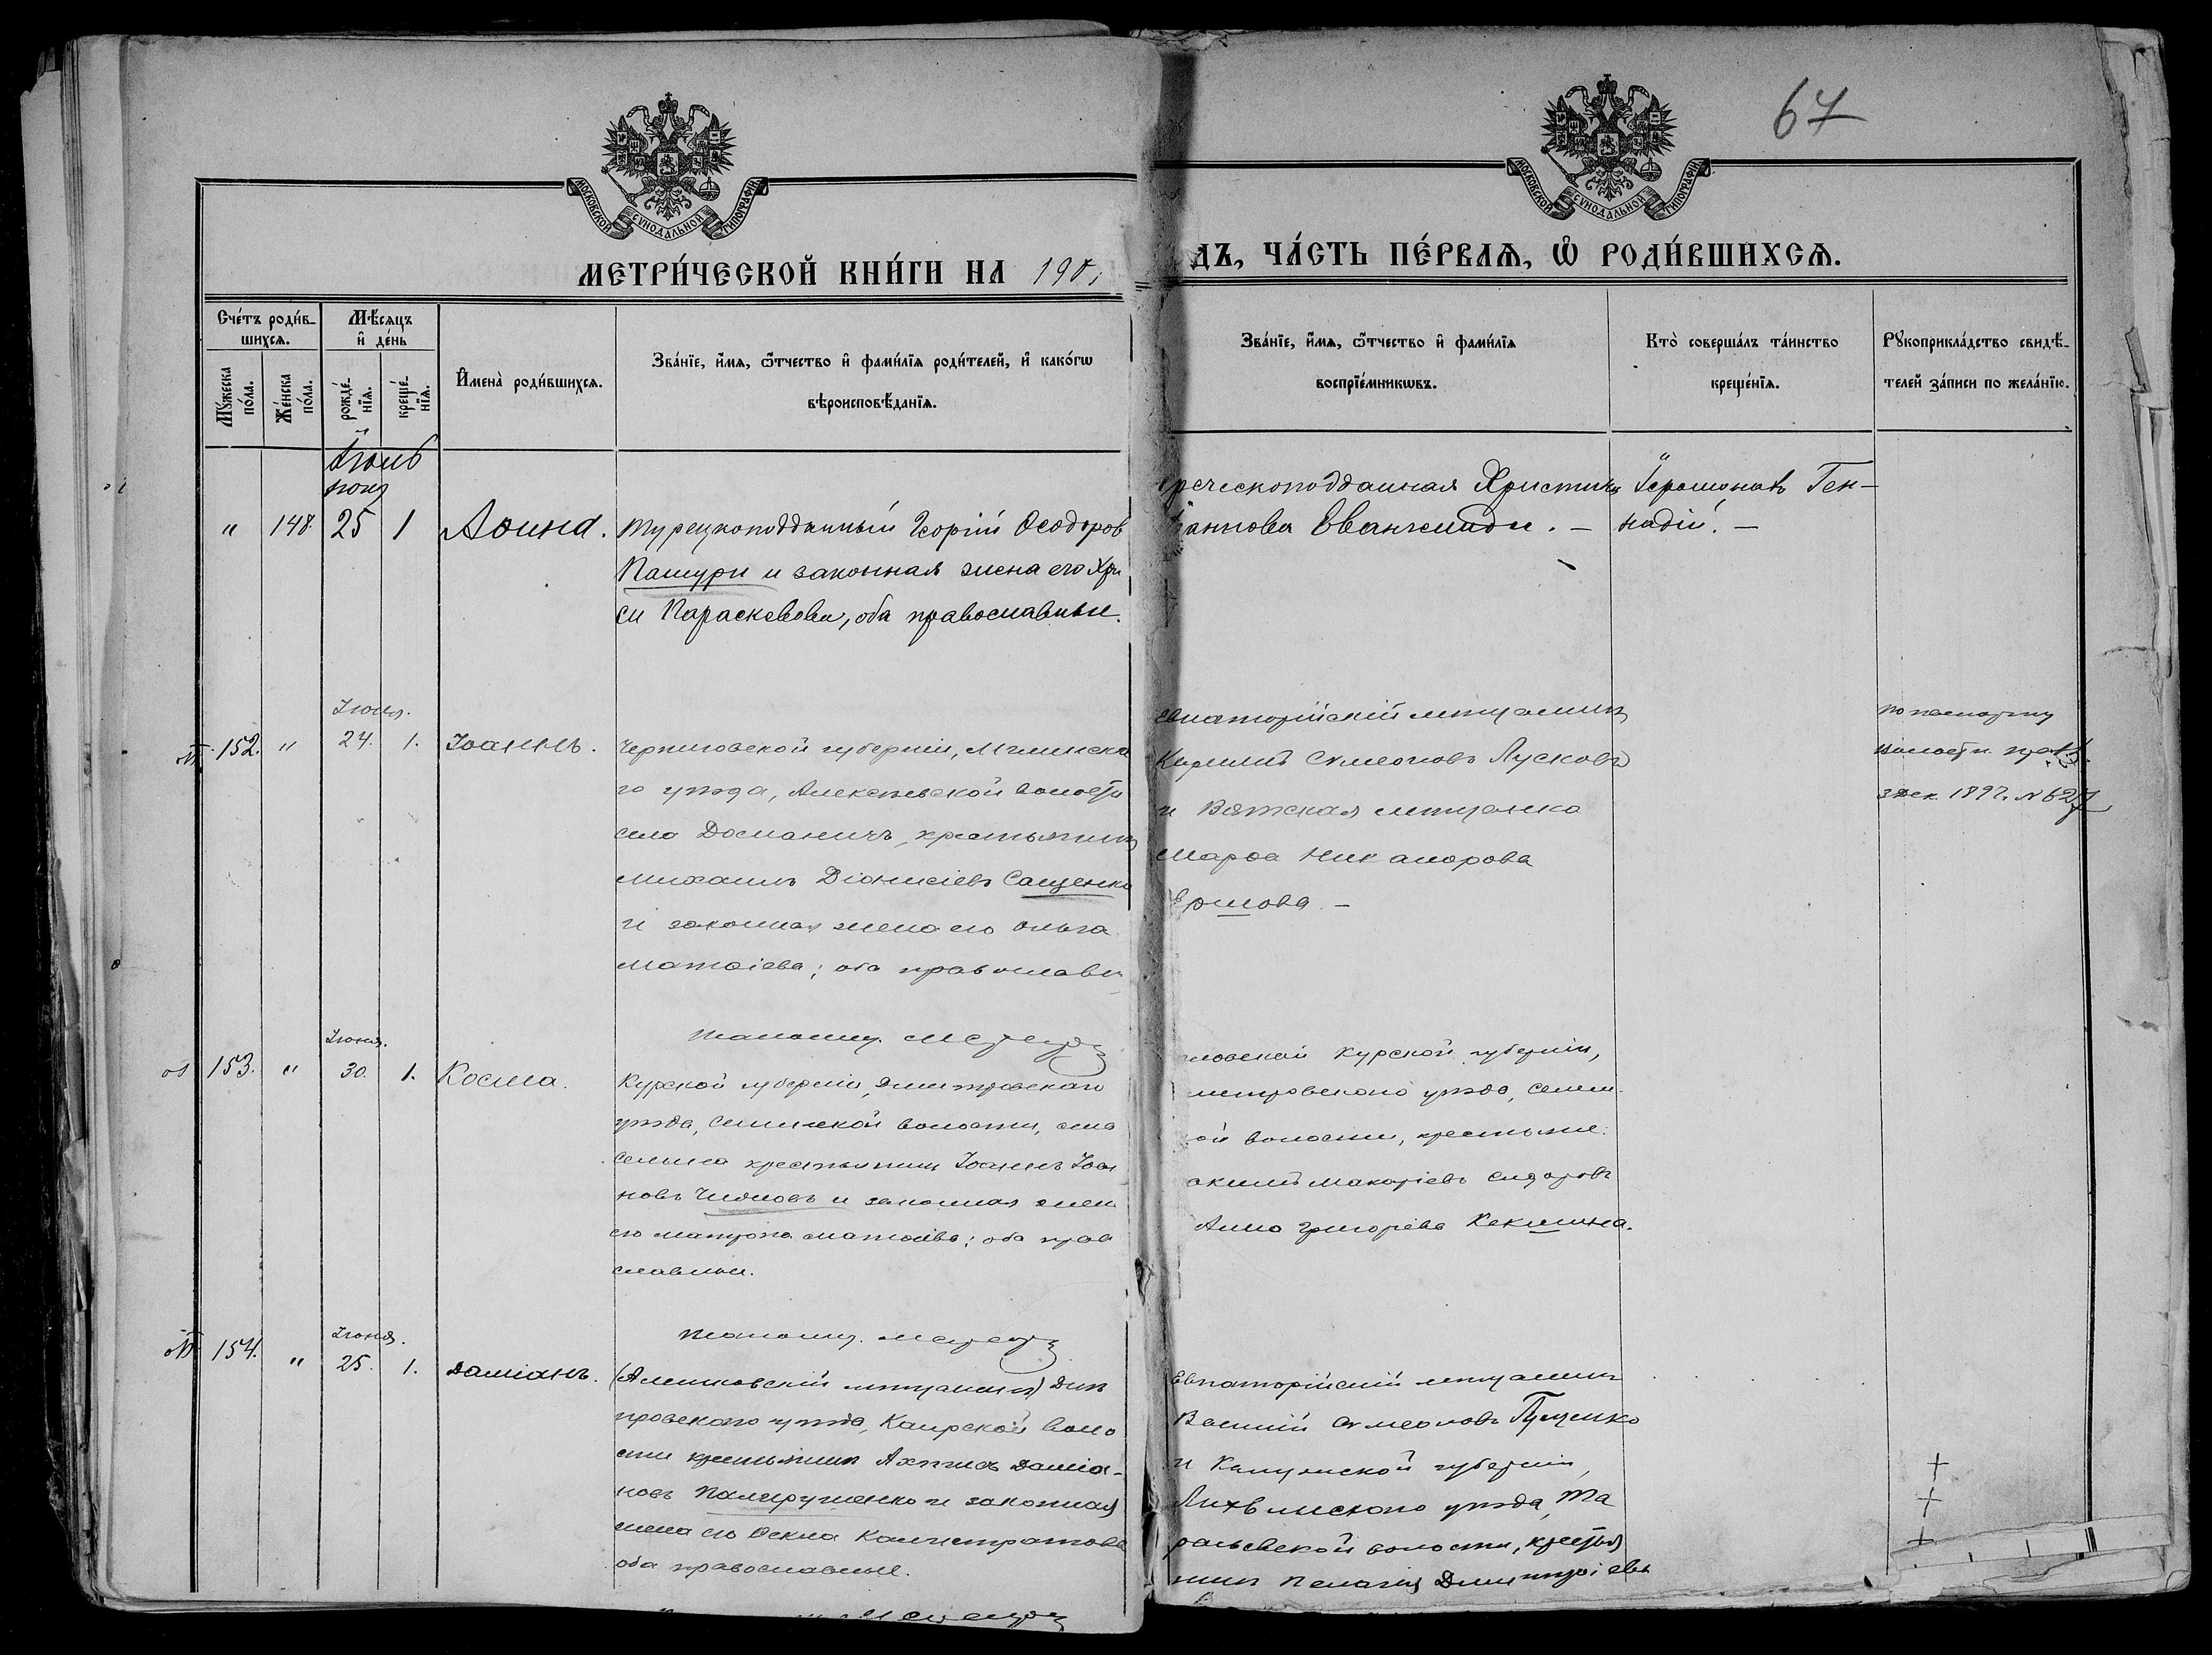 67
МОСКОВСКОЙ СѴНОДАЛЬНОЙ ТИПОГРАФІИ
МОСКОВСКОЙ СѴНОДАЛЬНОЙ ТИПОГРАФІИ
МЕТРИ́ЧЕСКОЙ КНИ́ГИ НА 190
ДЪ, ЧА́СТЬ ПЕ́РВАѦ, Ѡ҆ РОДИ́ВШИХСѦ.
Сче́тъ роди́в-
шихсѧ.
Мꙋ́жеска
по́ла.
Же́нска
по́ла.
Мѣ́сѧцъ
и҆ де́нь
рожде́-
нїѧ.
креще́-
нїѧ.
И҆мена̀ роди́вшихсѧ.
Зва́нїе, и҆́мѧ, ѻ҆́тчество и҆ фами́лїѧ роди́телей, и҆ како́гѡ
вѣроисповѣ́данїѧ.
Зва́нїе, и҆́мѧ, ѻ҆́тчество и҆ фами́лїѧ
воспрїе́мникѡвъ.
Кто̀ соверша́лъ та́инство
креще́нїѧ.
Рꙋкоприкла́дство свидѣ́-
телей за́писи по жела́нїю.
" 148. 25 1 Аѳина.
Турецкоподданный Георгій Ѳеодоров
Пашури и законная жена его Хри
си Параскевова, оба православные.
греческоподданная Христина
Евангелиди. —
Іеромонахъ Ген-
надій. —
Іюня.
152. " 24. 1. Іоаннъ.
Черниговской губерніи, Мглинска
го уѣзда, Алексѣевской волости
села Доманичъ, крестьянинъ
Михаилъ Діонисіевъ Сащенко
и законная жена его Ольга
Матѳіева; оба православн
евпаторійскій мѣщанинъ
Кириллъ Сѵмеоновъ Лусковъ
и Вятская мѣщанка
Марѳа Никанорова
Ершова. —
по паспорту
волостн. прав.
3 дек. 1897. № 627
Іюня.
153. " 30. 1. Косма.
Курской губерніи, Дмитровскаго
уѣзда, волости, села
крестьянинъ Іоаннъ Іоан
новъ и законная жен
его Матрона Матѳіева; оба прав
славные.
Курской губерніи,
митровскаго уѣзда,
ой волости, крестьяне:
акимъ Макаріевъ Сидоровъ
Анна Григоріева Кекшина.
Іюня.
154. " 25. 1. Даміанъ.
(Алешковскій мѣщанинъ) Днѣ
провскаго уѣзда, Каирской воло
сти крестьянинъ Даміа-
новъ и законная
жена его Ѳекла Каллистратова
оба православные.
Евпаторійскій мѣщанинъ
Василій Сѵмеоновъ Гущенко
и Калужской губерніи,
Лихвинскаго уѣзда, Та
волости, крестья
нинъ Пелагія Димитріева